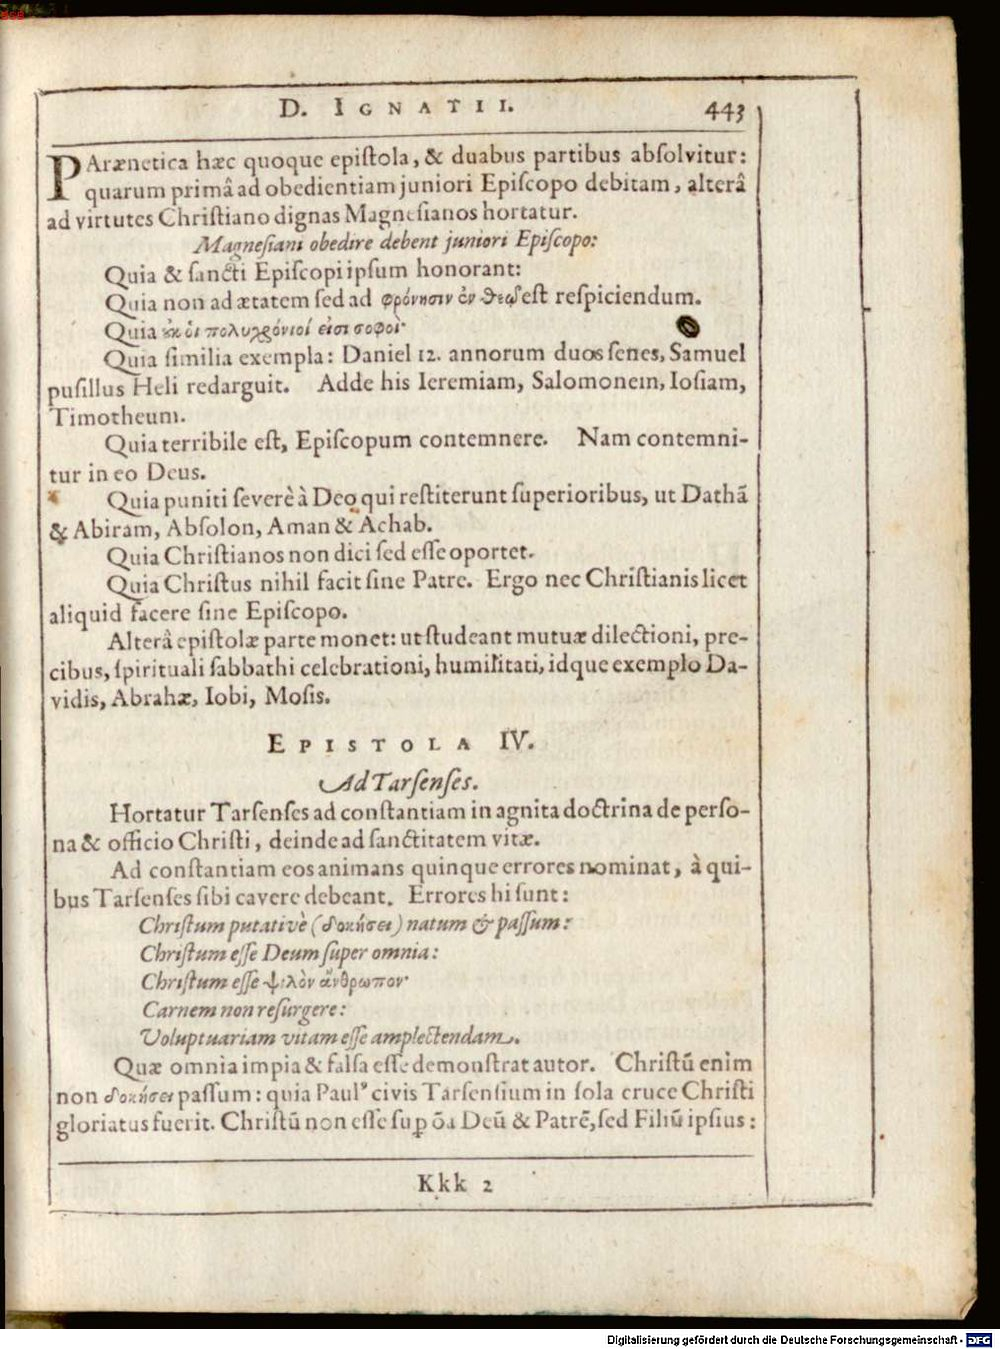 D. IGNATII. 443
PArænetica hæc quoque epiſtola, & duabus partibus abſolvitur:
quarum primâ ad obedientiam juniori Epiſcopo debitam, alterâ
ad virtutes Chriſtiano dignas Magneſianos hortatur.
Magneſiani obedire debent juniori Epiſcopo:
Quia & ſancti Epiſcopi ipſum honorant:
Quia non ad ætatem ſed ad φρόνησιν ἐν θεῷ eſt reſpiciendum.
Quia οἱ πολυχρόνιοί εἰσι σοφοί·
Quia ſimilia exempla: Daniel 12. annorum duos ſenes, Samuel
puſillus Heli redarguit. Adde his Ieremiam, Salomonem, Ioſiam,
Timotheum.
Quia terribile eſt, Epiſcopum contemnere. Nam contemni-
tur in eo Deus.
Quia puniti ſeverè à Deo qui reſtiterunt ſuperioribus, ut Dathã
& Abiram, Abſolon, Aman & Achab.
Quia Chriſtianos non dici ſed eſſe oportet.
Quia Chriſtus nihil facit ſine Patre. Ergo nec Chriſtianis licet
aliquid facere ſine Epiſcopo.
Alterâ epiſtolæ parte monet: ut ſtudeant mutuæ dilectioni, pre-
cibus, ſpirituali ſabbathi celebrationi, humilitati, idque exemplo Da-
vidis, Abrahæ, Iobi, Moſis.
EPISTOLA IV.
Ad Tarſenſes.
Hortatur Tarſenſes ad conſtantiam in agnita doctrina de perſo-
na & officio Chriſti, deinde ad ſanctitatem vitæ.
Ad conſtantiam eos animans quinque errores nominat, à qui-
bus Tarſenſes ſibi cavere debeant. Errores hi ſunt:
Chriſtum putativè (δοκήσει) natum & paſſum:
Chriſtum eſſe Deum ſuper omnia:
Chriſtum eſſe ψιλὸν ἄνθρωπον·
Carnem non reſurgere:
Voluptuariam vitam eſſe amplectendam.
Quæ omnia impia & falſa eſſe demonſtrat autor. Chriſtũ enim
non δοκήσει paſſum: quia Paulꝰ civis Tarſenſium in ſola cruce Chriſti
gloriatus fuerit. Chriſtũ non eſſe ſuꝑ õa Deũ & Patrẽ, ſed Filiũ ipſius:
Kkk 2
Digitalisierung gefördert durch die Deutsche Forschungsgemeinschaft - DFG